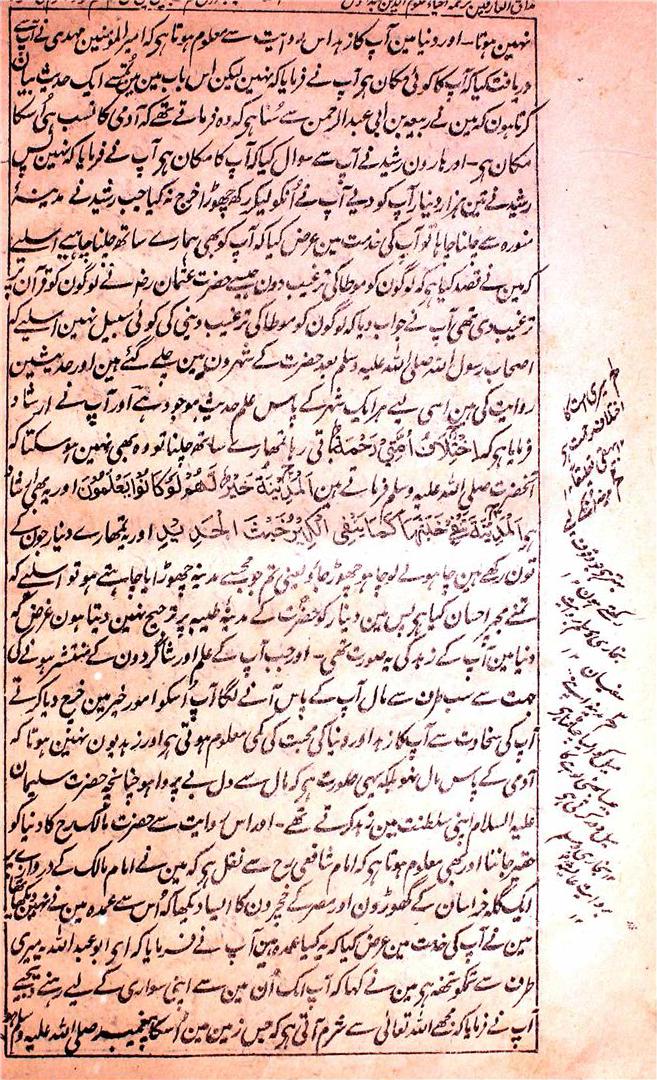 مذاق العارفین ترجمہ احیاء علوم الدین جلد اول
نہین ہوتا۔ اور دنیا مین آپ کا زہد اس روایت سے معلوم ہوتا ہی کہ امیر المومنین مہدی نے آپسے
دریافت کیا کہ آپ کا کوئی مکان ہی آپ نے فرمایا کہ نہین لیکن اس باب مین مین تمسے ایک حدیث بیان
کرتا ہون کہ مین نے ربیعہ بن ابی عبد الرحمن سے سُنا ہی کہ وہ فرماتے تھے کہ آدمی کا نسب ہی اُسکا
مکان ہی۔ اور ہارون رشید نے آپ سے سوال کیا کہ آپ کا مکان ہی آپ نے فرمایا کہ نہین پس
رشید نے تین ہزار دینار آپ کو دیے آپ نے اُنکو لیکر رکھ چھوڑا خرج نہ کیا جب رشید نے مدینۂ
منورہ سے چلنا چاہا تو آپ کی خدمت مین عرض کیا کہ آپ کو بھی ہمارے ساتھ چلنا چاہیے اسلیے
کہ مین نے قصد کیا ہی کہ لوگون کو موطا کی ترغیب دون جیسے حضرت عثمان رضہ نے لوگون کو قرآن پر
ترغیب دی تھی آپ نے جواب دیا کہ لوگون کو موطا کی ترغیب دینی کی کوئی سبیل نہین اسلیے کہ
اصحاب رسول اللہ صلی اللہ علیہ وسلم بعد حضرت کے شہرون مین چلے گئے ہین اور حدیثین
روایت کی ہین اسی لیے ہر ایک شہر کے پاس علم حدیث موجود ہے اور آپ نے ارشاد
فرمایا ہی کہ اِخْتِلَافُ اُمَّتِیْ رَحْمَۃٌ باقی رہا تمھارے ساتھ چلنا تو وہ بھی نہین ہو سکتا کہ
آنحضرت صلی اللہ علیہ وسلم فرماتے ہین اَلْمَدِیْنَۃُ خَیْرٌ لَّھُمْ لَوْ کَانُوْا یَعْلَمُوْنَ اور یہ بھی ارشاد
ہی اَلْمَدِیْنَۃُ تَنْفِیْ خَبَثَھَا کَمَا یَنْفِی الْکِیْرُ خَبَثَ الْحَدِیْدِ اور یہ تمھارے دینار جون کے
تون رکھے ہین چاہو لے لو چاہو چھوڑ جاؤ یعنی تم جو مجھسے مدینہ چھوڑایا چاہتے ہو تو اسلیے کہ
تمنے مجھپر احسان کیا ہی پس مین دینار کو حضرت کے مدینۂ طیبہ پر ترجیح نہین دیتا ہون غرض کہ
دنیا مین آپ کے زہد کی یہ صورت تھی۔ اور جب آپ کے علم اور شاگردون کے منتشر ہونے کی
جہت سے سب طرف سے مال آپ کے پاس آنے لگا آپ اُسکو امور خیر مین خرچ دیا کرتے
آپ کی سخاوت سے آپ کا زہد اور دنیا کی محبت کی کمی معلوم ہوتی ہی اور زہد یون نہین ہوتا کہ
آدمی کے پاس مال نہو بلکہ یہی صورت ہی کہ مال سے دل بے پروا ہو چنانچہ حضرت سلیمان
علیہ السلام اپنی سلطنت مین زہد کرتے تھے۔ اور اس روایت سے حضرت مالک رح کا دنیا کو
حقیر جاننا اور بھی معلوم ہوتا ہی کہ امام شافعی رح سے نقل ہی کہ مین نے امام مالک کے دروازے پر
ایک گلہ خراسان کے گھوڑون اور مصر کے خچرون کا ایسا دیکھا کہ اُس سے عمدہ مین نے نہین دیکھا تھا
مین نے آپ کی خدمت مین عرض کیا کہ یہ کیا عمدہ ہین آپ نے فرمایا کہ ای ابو عبد اللہ یہ میری
طرف سے تمکو تحفہ ہی مین نے کہا کہ آپ ایک اُن مین سے اپنی سواری کے لیے رہنے دیجیے
آپ نے فرمایا کہ مجھے اللہ تعالی سے شرم آتی ہی کہ جس زمین مین اُسکا پیغمبر صلی اللہ علیہ وسلم ہو
میری امت کا
اختلاف رحمت ہی